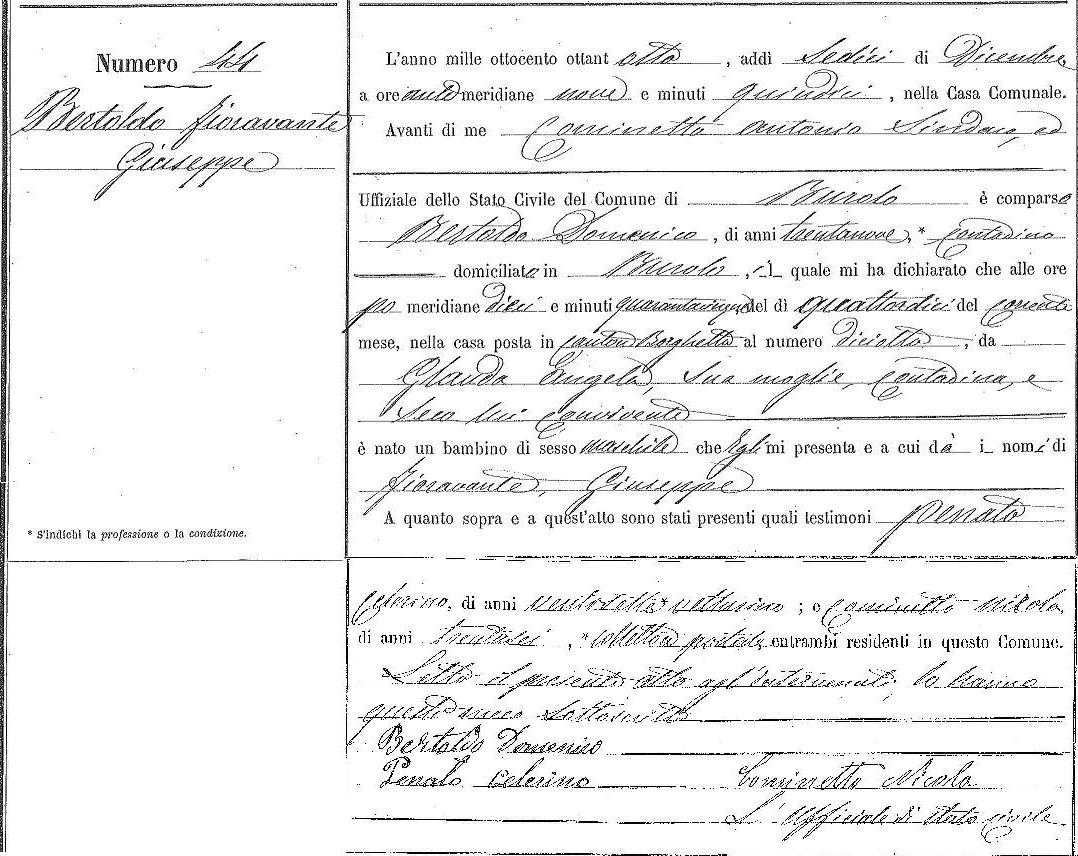 Numero 44
Bertoldo Fioravante
Giuseppe
* S'indichi la professione o la condizione.
L'anno mille ottocento ottant otto, addì Sedici di Dicembre
a ore ante meridiane nove e minuti quindici, nella Casa Comunale.
Avanti di me Cominetto Antonio Sindaco, ed
Uffiziale dello Stato Civile del Comune di Burolo è comparso
Bertoldo Domenico, di anni trentanove,* Contadino
domiciliato in Burolo, il quale mi ha dichiarato che alle ore
po meridiane dieci e minuti quarantacinque del dì quattordici del corrente
mese, nella casa posta in Canton Borghetto al numero diciotto, da
Glauda Angela, sua moglie, contadina, e
seco lui convivente
è nato un bambino di sesso maschile che Egli mi presenta e a cui dà i nomi di
Fioravante, Giuseppe
A quanto sopra e a quest'atto sono stati presenti quali testimoni Penato
Celerino, di anni ventisette vetturino; e Cominetto Nicola
di anni trentasei, * collettore postale, entrambi residenti in questo Comune.
Letto il presente atto agl'intervenuti, lo hanno
questi meco sottoscritto
Bertoldo Domenico
Penato Celerino Cominetto Nicola
L'Uffiziale di stato civile